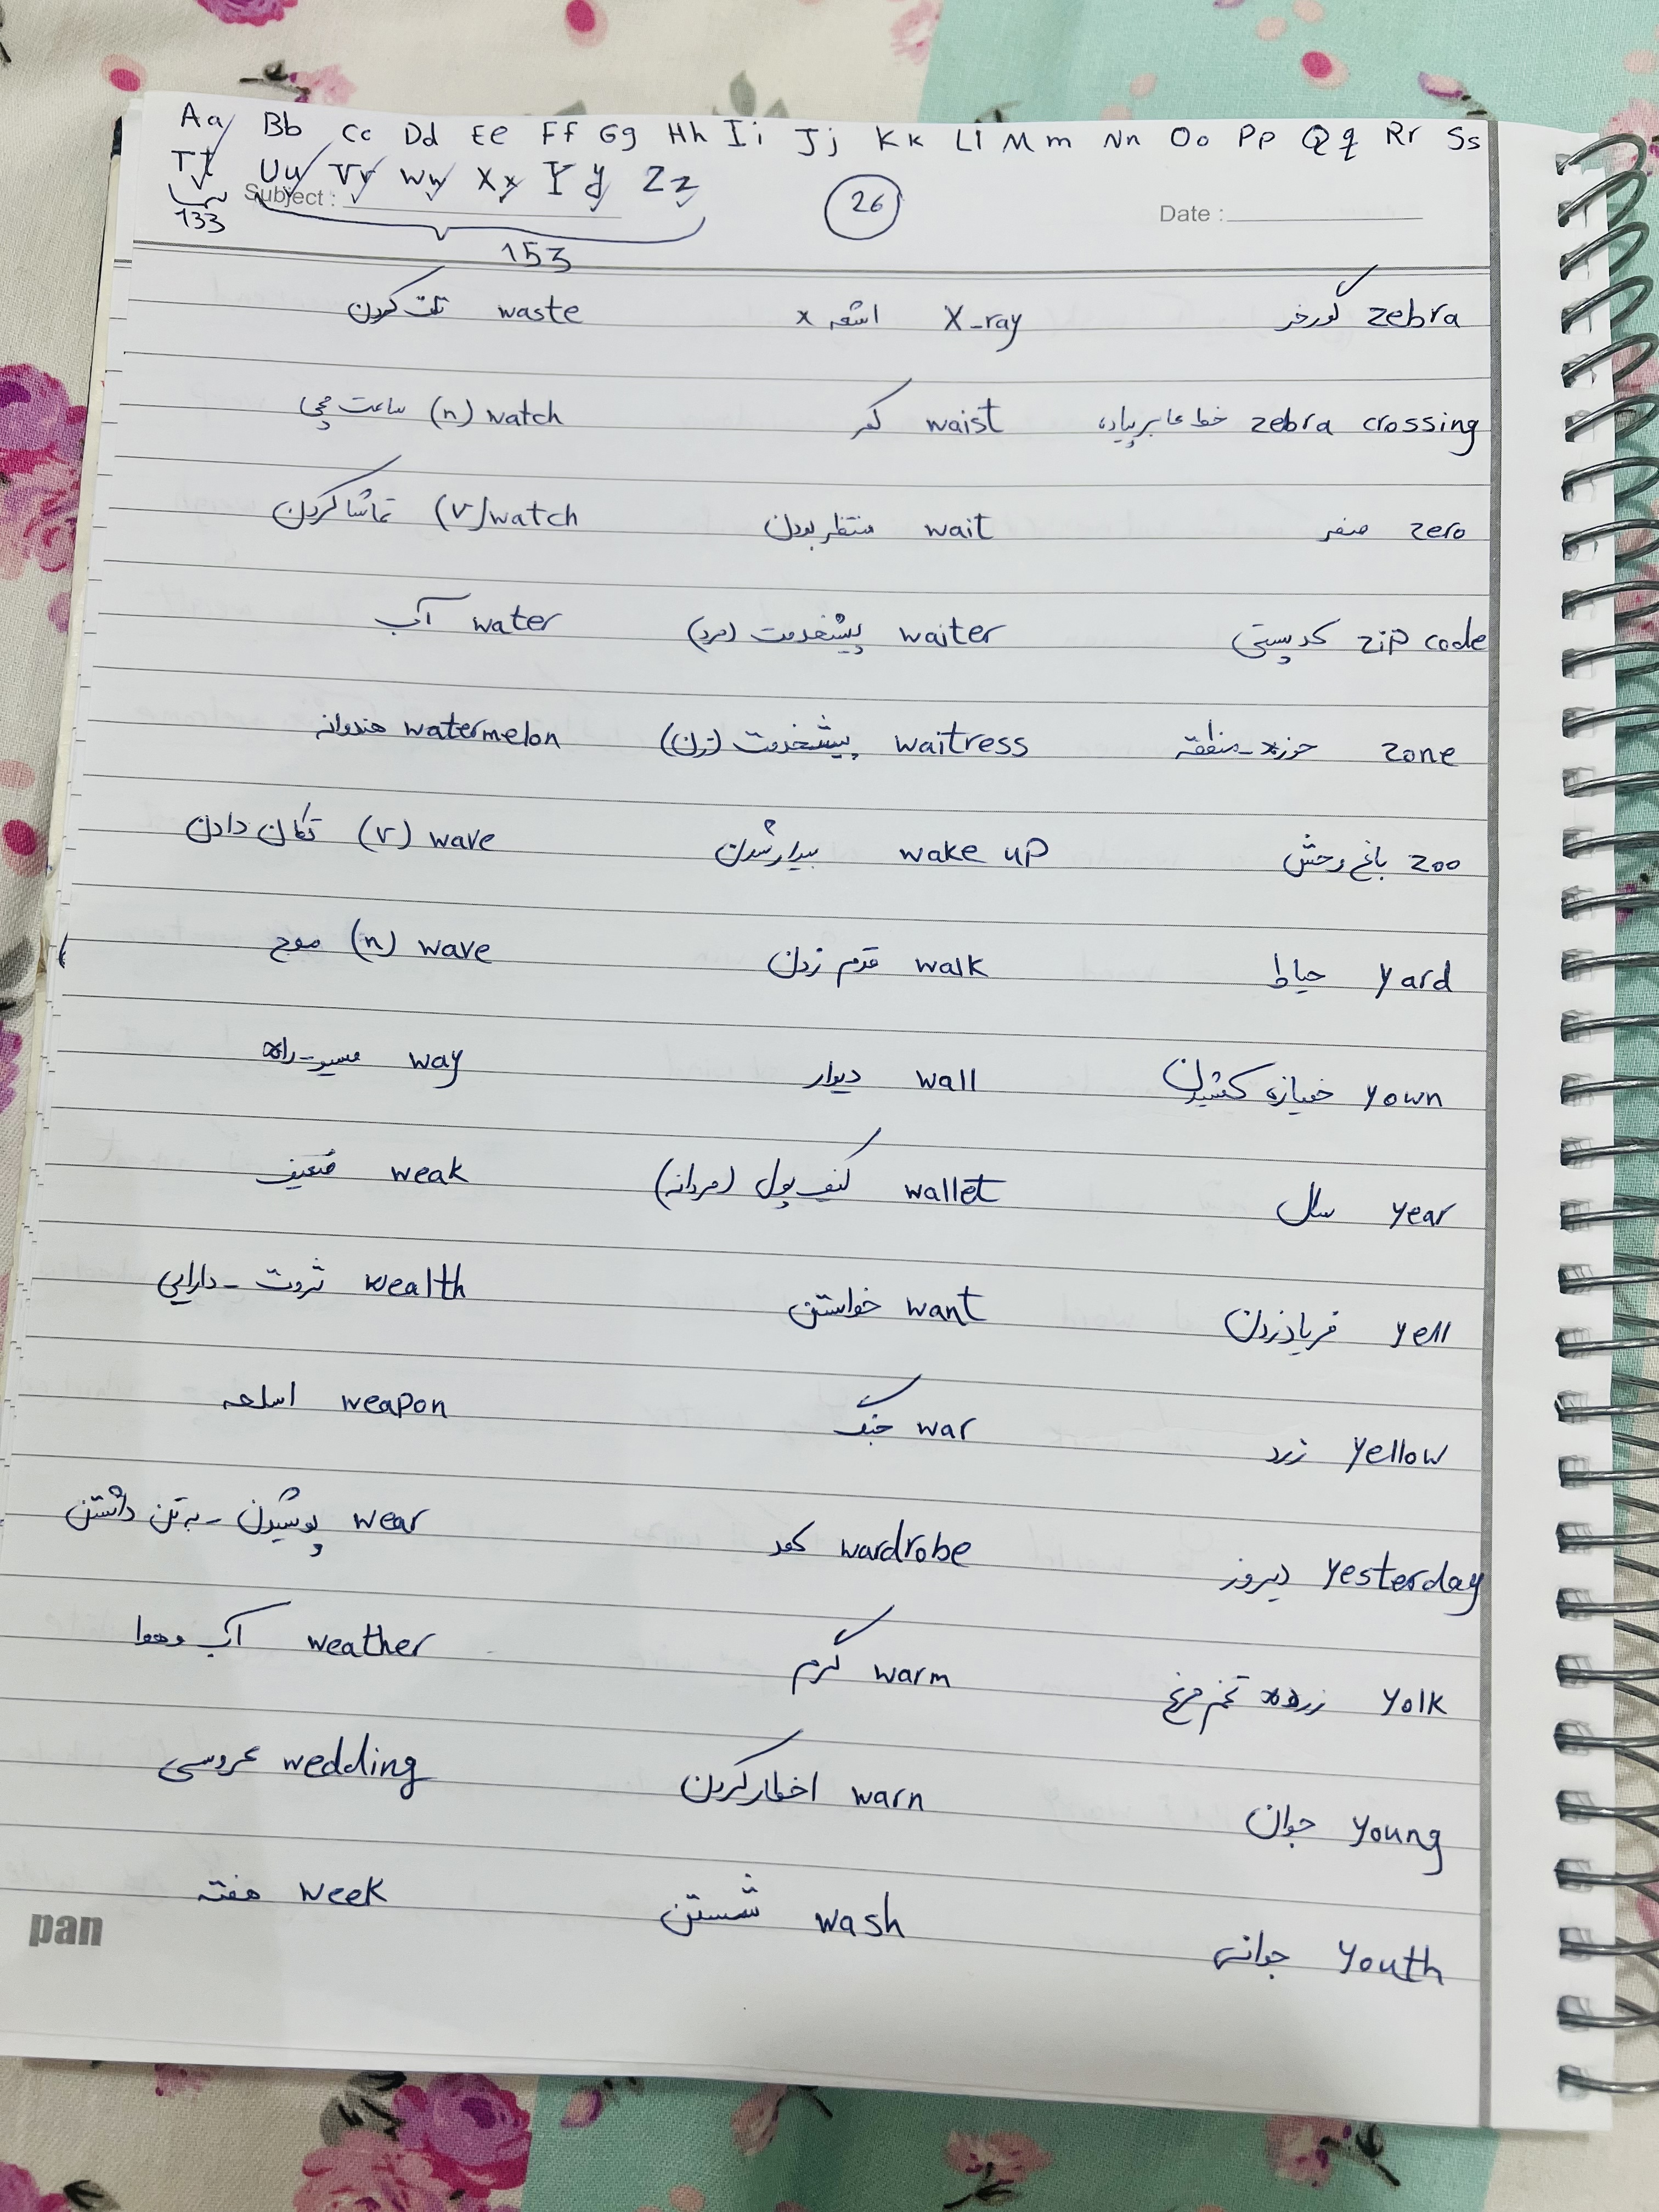 Aa Bb Cc Dd Ee Ff Gg Hh Ii Jj Kk Ll Mm Nn Oo Pp Qq Rr Ss
Tt Uu Vv Ww Xx Yy Zz
Subject :
26
Date :
133
153
zebra گورخر
zebra crossing خط عابر پیاده
zero صفر
zip code کد پستی
zone حوزه - منطقه
zoo باغ وحش
yard حیاط
yown خمیازه کشیدن
year سال
yell فریاد زدن
yellow زرد
yesterday دیروز
yolk زرده تخم مرغ
young جوان
youth جوانی
X-ray اشعه x
waist کمر
wait منتظر بودن
waiter پیشخدمت (مرد)
waitress پیشخدمت (زن)
wake up بیدار شدن
walk قدم زدن
wall دیوار
wallet کیف پول (مردانه)
want خواستن
war جنگ
wardrobe کمد
warm گرم
warn اخطار کردن
wash شستن
waste تلف کردن
watch (n) ساعت مچی
watch (v) تماشا کردن
water آب
watermelon هندوانه
wave (v) تکان دادن
wave (n) موج
way مسیر - راه
weak ضعیف
wealth ثروت - دارایی
weapon اسلحه
wear پوشیدن - به تن داشتن
weather آب و هوا
wedding عروسی
week هفته
pan